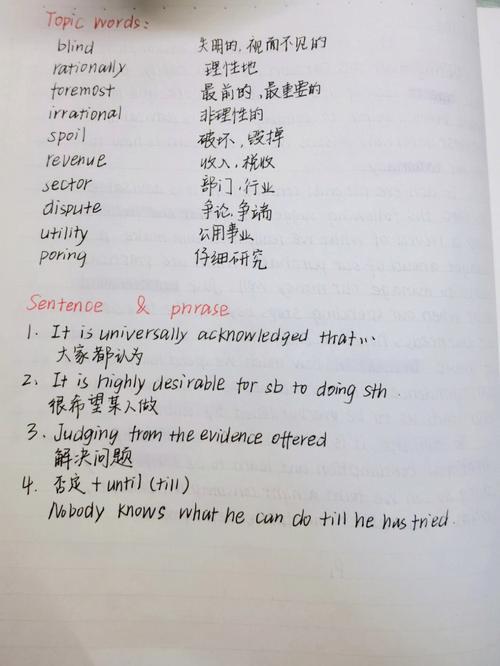 Topic words:
blind 失明的, 视而不见的
rationally 理性地
foremost 最前的, 最重要的
irrational 非理性的
spoil 破坏, 毁掉
revenue 收入, 税收
sector 部门, 行业
dispute 争论, 争端
utility 公用事业
poring 仔细研究
Sentence & phrase
1. It is universally acknowledged that...
大家都认为
2. It is highly desirable for sb to doing sth.
很希望某人做
3. Judging from the evidence offered
解决问题
4. 否定 + until (till)
Nobody knows what he can do till he has tried.